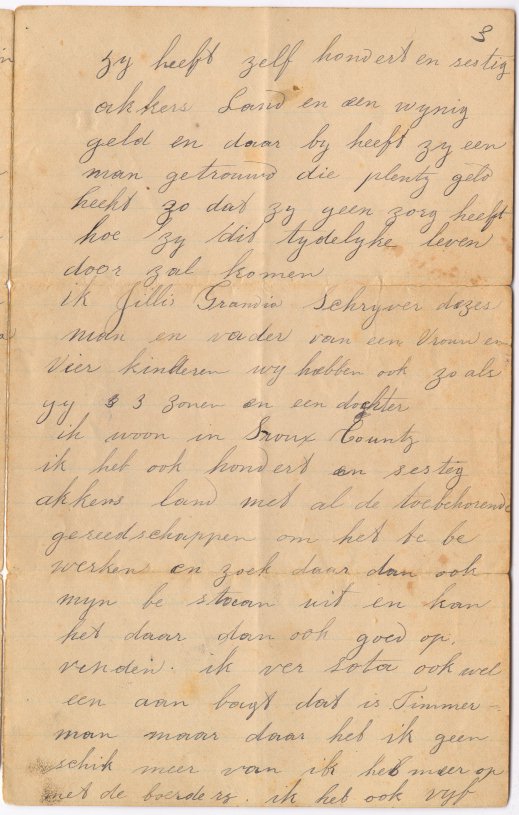 3
zy heeft zelf hondert en sestig
akkers Land en een wynig
geld en daar by heeft zy een
man getrouwd die plenty geld
heeft zo dat zy geen zorg heeft
hoe zy dit tydelyke leven
door zal komen
ik Jillis Grandia Schryver dezes
man en vader van een Vrouw en
Vier kinderen wy hebben ook zo als
yy 3 zonen en een dochter
ik woon in Sioux County
ik heb ook hondert en sestig
akkers land met al de toebehorende
gereedschappen om het te be
werken en zoek daar dan ook
myn be staan uit en kan
het daar dan ook goed op.
venden. ik ver ook wel
een aan bagt dat is Timmer-
man maar daar heb ik geen
schik meer van ik heb meer op
met de boerdery. ik heb ook vyf